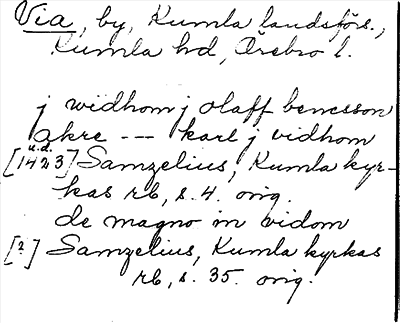 Via, by, Kumla landsförs.,
Kumla hd, Örebro l.
j widhom j olaff benesson
akre --- karl j vidhom
u.d.
[1423] Samzelius, Kumla kyr-
kas rb, s. 4. orig.
de magno in vidom
[?] Samzelius, Kumla kyrkas
rb, s. 35. orig.